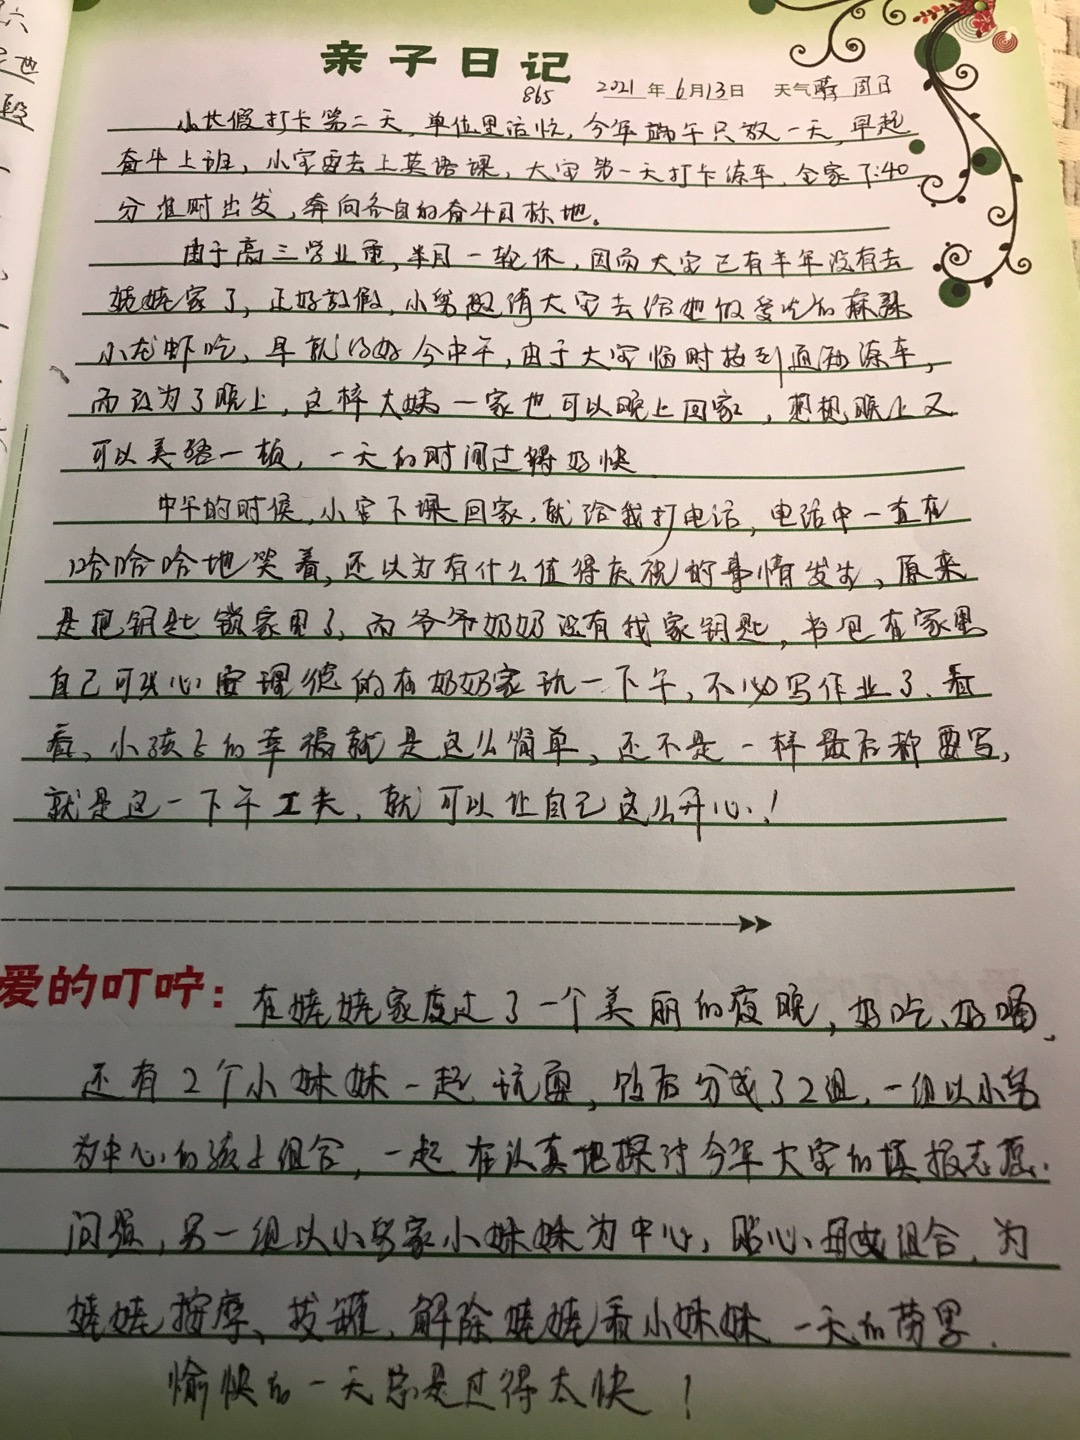 亲子日记
865 2021年6月13日 天气晴 周日
小长假打卡第二天,单位里活忙,今年端午只放一天,早起
奋斗上班,小宝要去上英语课,大宝第一天打卡练车,全家7:40
分准时出发,奔向各自的奋斗目标地。
由于高三学业重,半月一轮休,因而大宝已有半年没有去
姥姥家了,正好放假,小舅邀请大宝去给她做爱吃的麻辣
小龙虾吃,早就约好今中午,由于大宝临时接到通知练车,
而改为了晚上,这样大妹一家也可以晚上回家,想想晚上又
可以美餐一顿,一天的时间过得好快
中午的时候,小宝下课回家,就给我打电话,电话中一直在
哈哈哈地笑着,还以为有什么值得庆祝的事情发生,原来
是把钥匙锁家里了,而爷爷奶奶没有我家钥匙,书包在家里
自己可以心安理得的在奶奶家玩一下午,不必写作业了、看
看,小孩子的幸福就是这么简单,还不是一样最后都要写,
就是这一下午工夫,就可以让自己这么开心!
爱的叮咛:在姥姥家度过了一个美丽的夜晚,好吃、好喝,
还有2个小妹妹一起玩耍,饭后分成了2组,一组以小舅
为中心的孩子组合,一起在认真地探讨今年大宝的填报志愿
问题,另一组以小舅家小妹妹为中心,贴心母女组合,为
姥姥按摩、拔罐,解除姥姥看小妹妹一天的劳累.
愉快的一天总是过得太快!